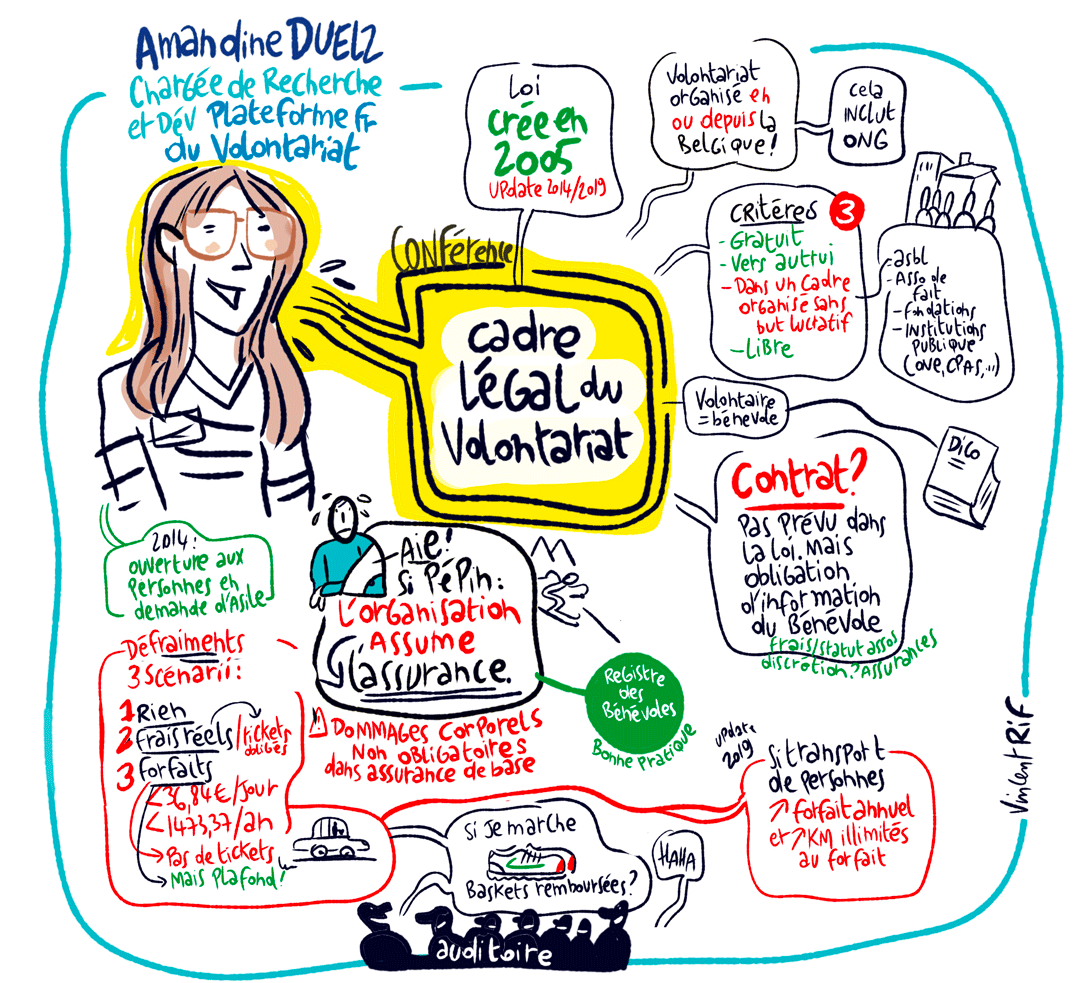 Amandine DUELZ
Chargée de Recherche
et Dév Plateforme fr
du Volontariat
Loi
créé en
2005
update 2014/2019
Volontariat
organisé en
ou depuis la
Belgique!
cela
INCLUT
ONG
CRITÈRES 3
- Gratuit
- Vers auttrui
- Dans un cadre
organisé sans
but lucratif
- Libre
- asbl
- Asso de
fait
- Fondations
- Institutions
PUBLIQUE
(ONE, CPAS, ...)
CONférence
cadre
LÉGAL du
Volontariat
Volontaire
= bénévole
DiCo
Contrat?
Pas prévu dans
la loi. Mais
obligation
d'information
du Bénévole
frais/statut assos
discrétion? Assurances
2014:
ouverture aux
personnes en
demande d'Asile
Aïe!
si PéPin:
L'organisation
ASSUME
l'assurance.
⚠ DOMMAGES CORPORELS
Non obligatoires
dans assurance de base
Registre
des
Bénévoles
Bonne pratique
Défraiments
3 Scénarii:
1 Rien
2 Frais réels/tickets
obligés
3 forfaits
<36,84€/Jour
<1473,37/an
→ Pas de tickets
→ Mais Plafond!
update
2019
si transport
de personnes
↗ forfait annuel
et ↗ KM illimités
au forfait
Si je marche
Baskets remboursées?
HAHA
auditoire
Vincent Rif